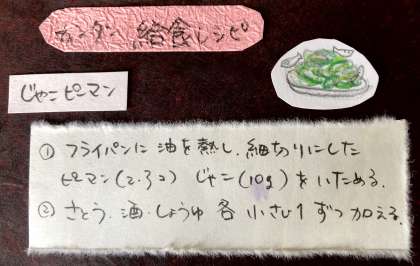 カンタン 給食レシピ
じゃこピーマン
① フライパンに 油を熱し、細切りにした
ピーマン(2.3コ) じゃこ(10g) をいためる。
② さとう.酒.しょうゆ 各 小さじ1 ずつ 加える。